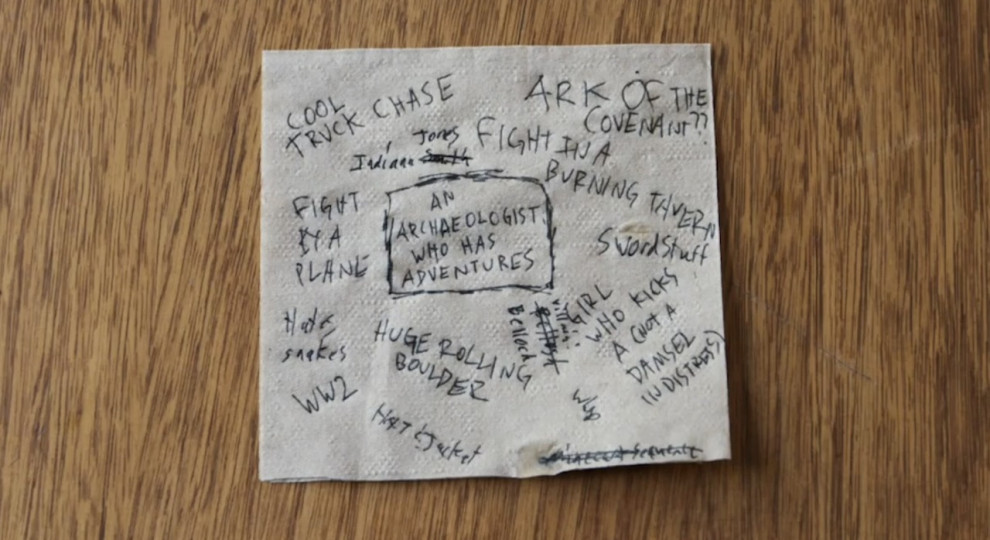 COOL
TRUCK CHASE
ARK OF THE
COVENANT??
Jones
Indiana
FIGHT IN A
BURNING TAVERN
FIGHT
BY A
PLANE
AN
ARCHAEOLOGIST
WHO HAS
ADVENTURES
Sword stuff
GIRL
WHO KICKS
A (NOT A
DAMSEL
IN DISTRESS)
villain:
Belloch
Hates
snakes
HUGE ROLLING
BOULDER
WW2
Hat & Jacket